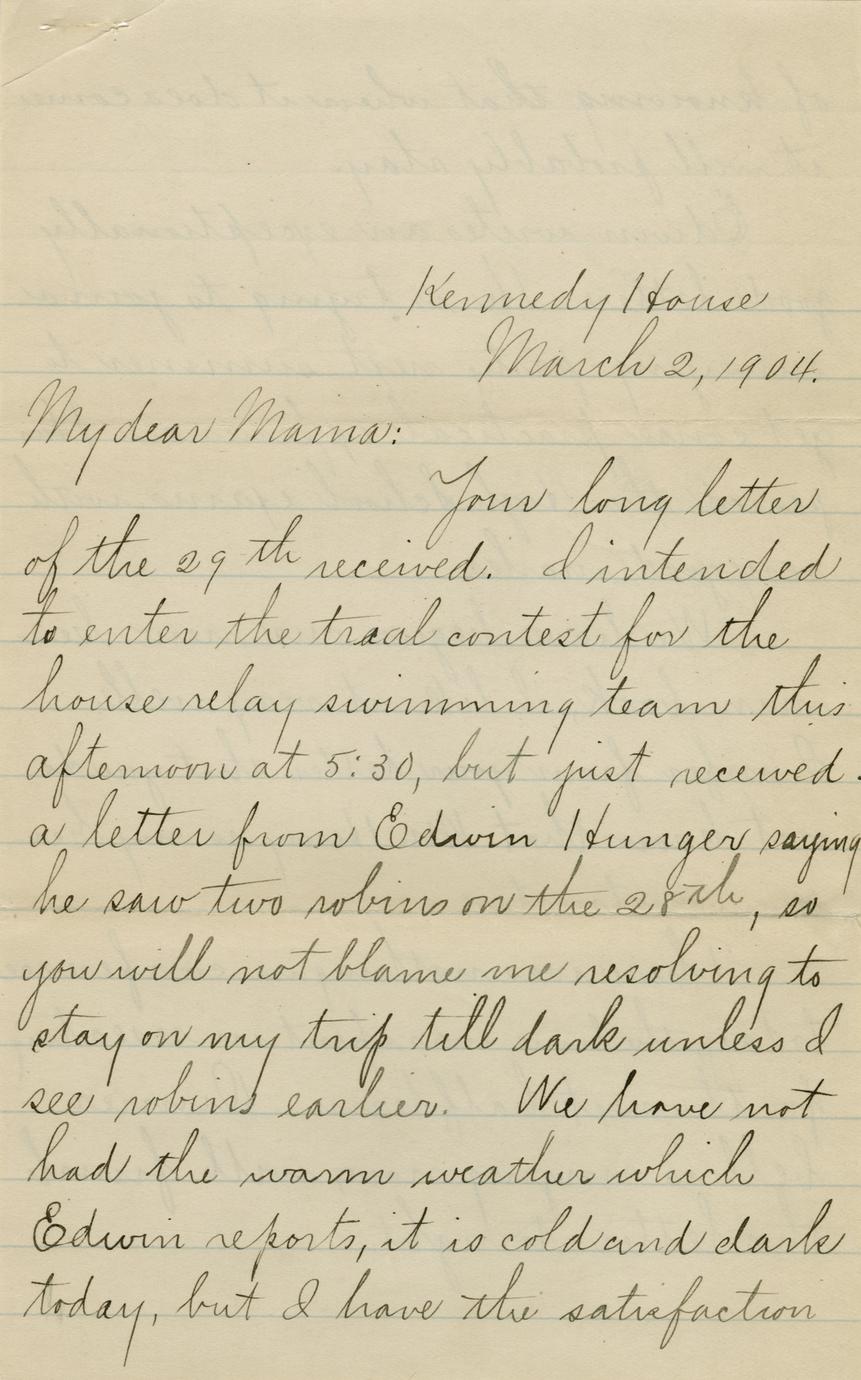 Kennedy House
March 2, 1904.
My dear Mama:
Your long letter
of the 29th received. I intended
to enter the traal contest for the
house relay swimming team this
afternoon at 5:30, but just received.
a letter from Edwin Hunger saying
he saw two robins on the 28th, so
you will not blame me resolving to
stay on my trip till dark unless I
see robins earlier. We have not
had the warm weather which
Edwin reports, it is cold and dark
today, but I have the satisfaction